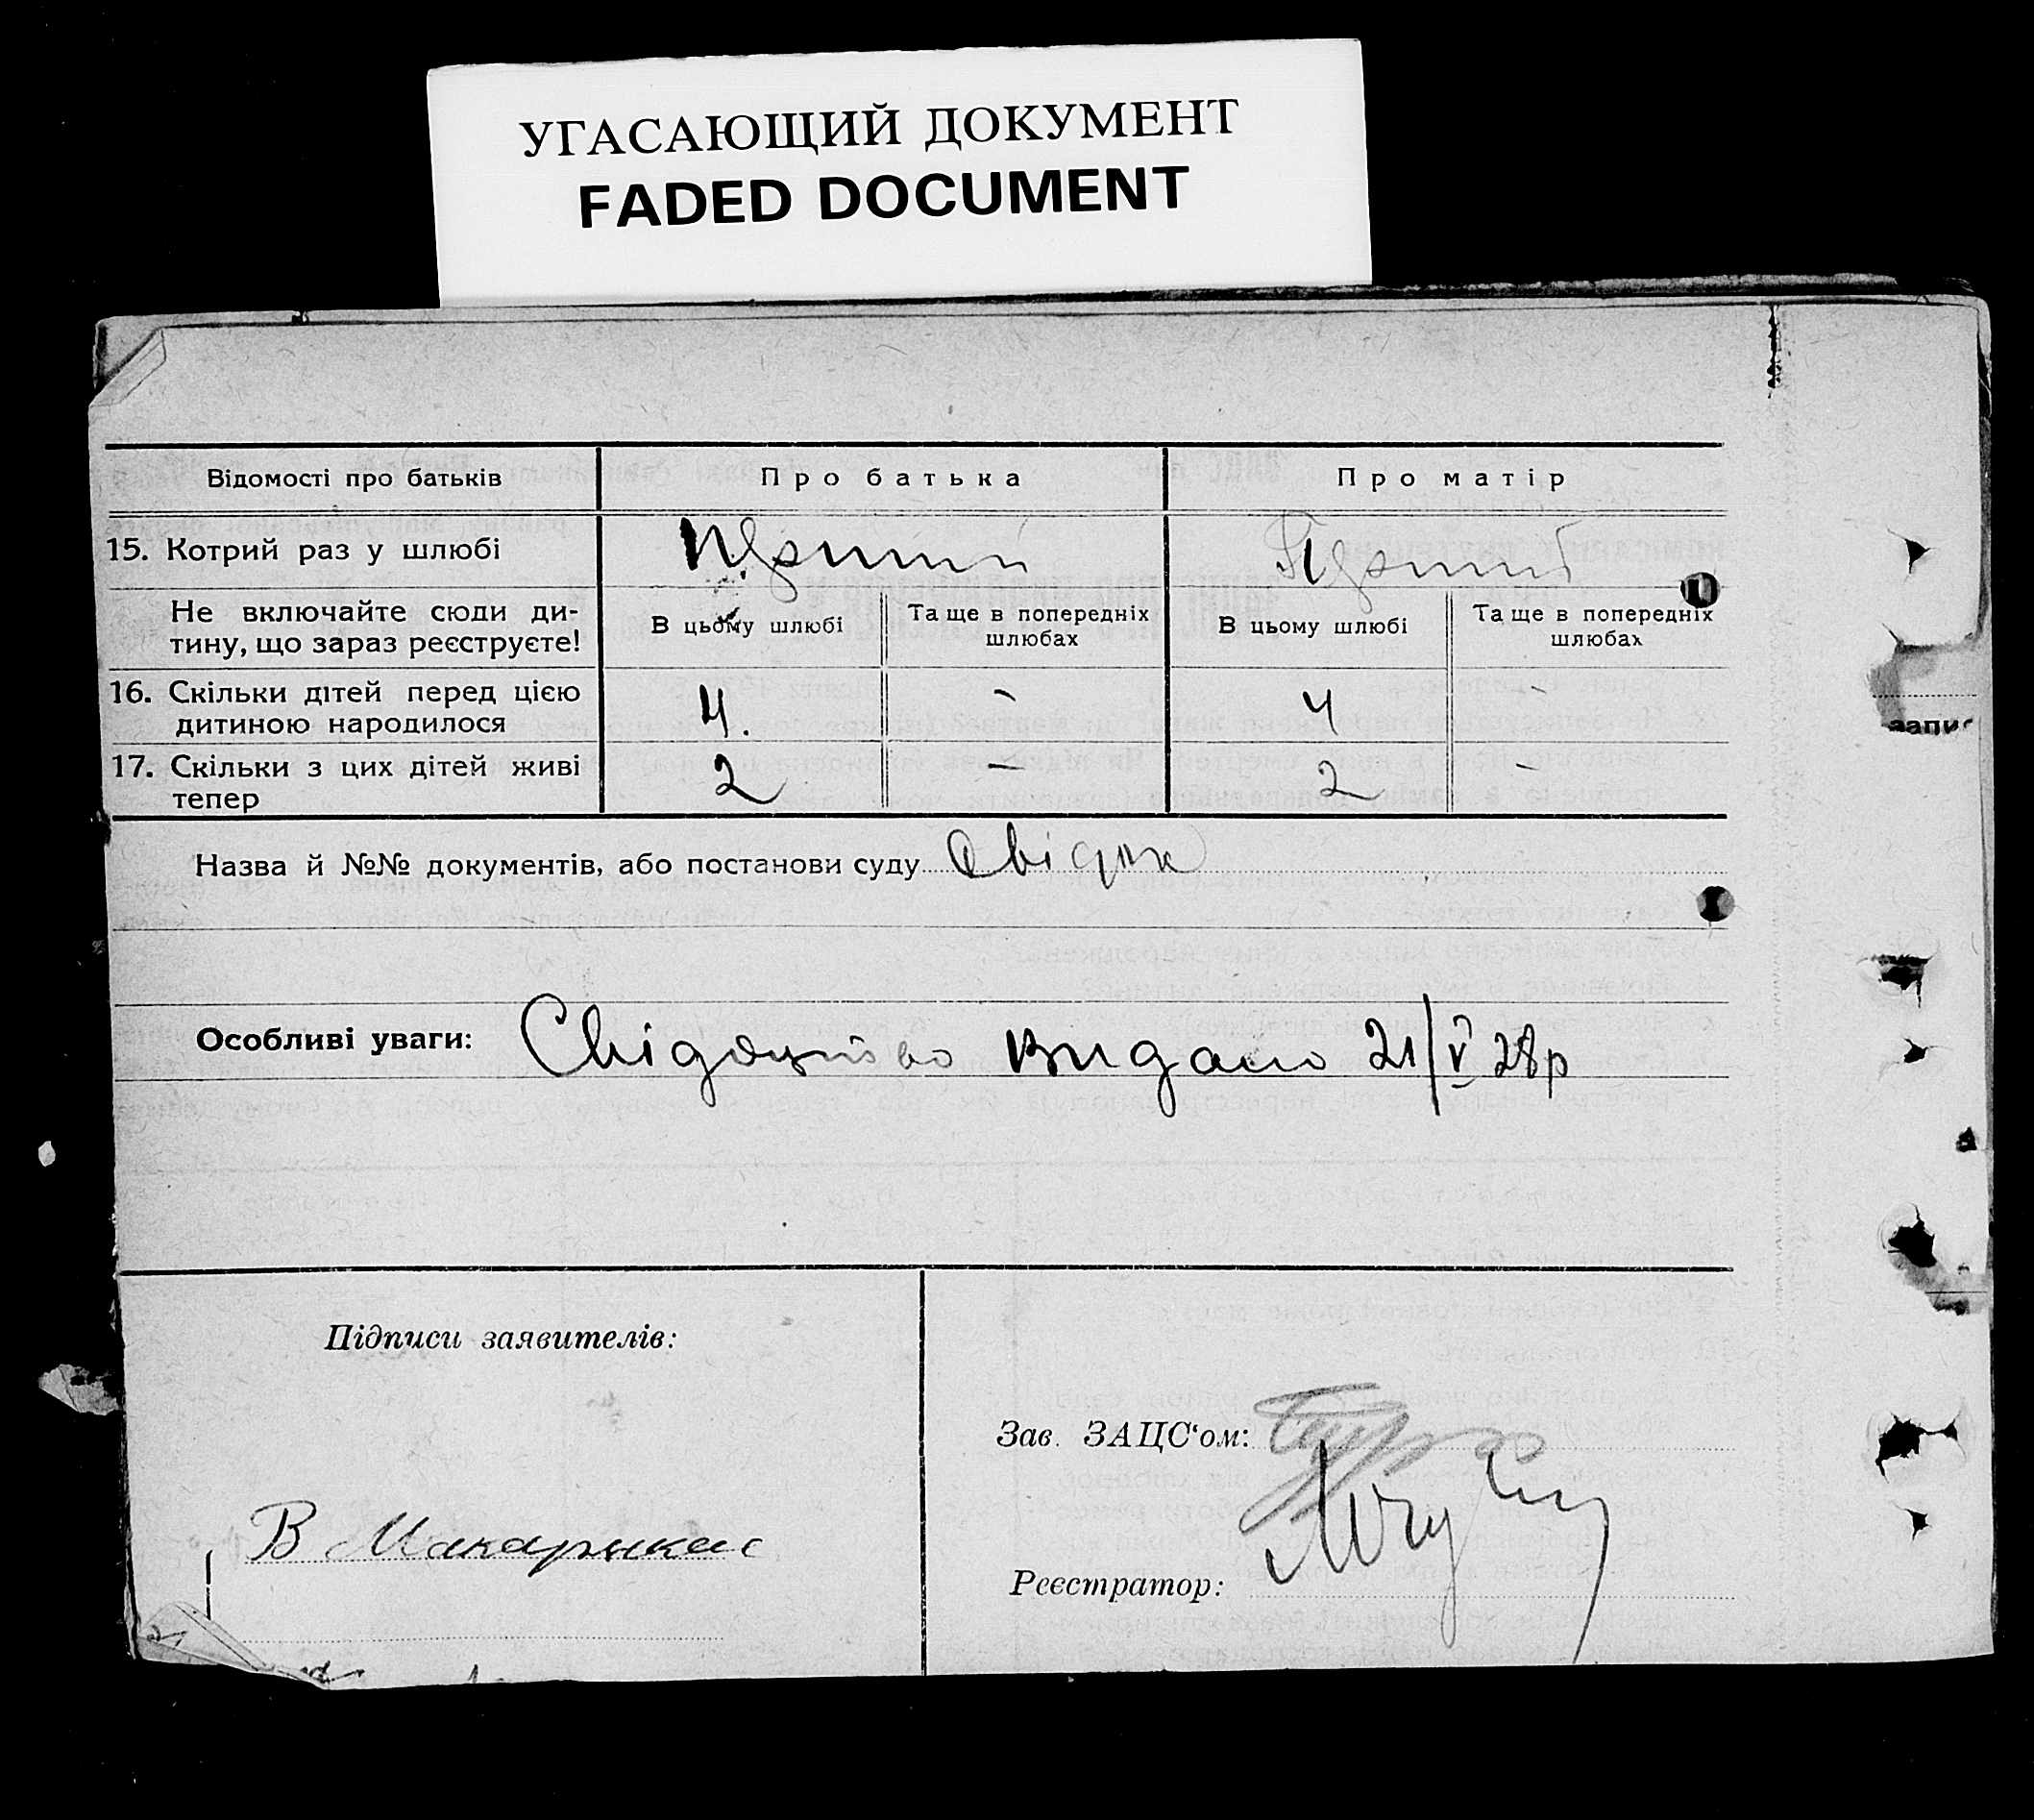 УГАСАЮЩИЙ ДОКУМЕНТ
FADED DOCUMENT
Відомості про батьків
Про батька
Про матір
15. Котрий раз у шлюбі
перший
Перший
Не включайте сюди ди-
тину, що зараз реєструєте!
В цьому шлюбі
Та ще в попередніх
шлюбах
В цьому шлюбі
Та ще в попередніх
шлюбах
16. Скільки дітей перед цією
дитиною народилося
4.
–
4
–
17. Скільки з цих дітей живі
тепер
2
–
2
–
Назва й №№ документів, або постанови суду
Особливі уваги: Свідоцтво видано 21/V 28р
Підписи заявителів:
Зав. ЗАЦС‘ом:
В
Реєстратор:
запис